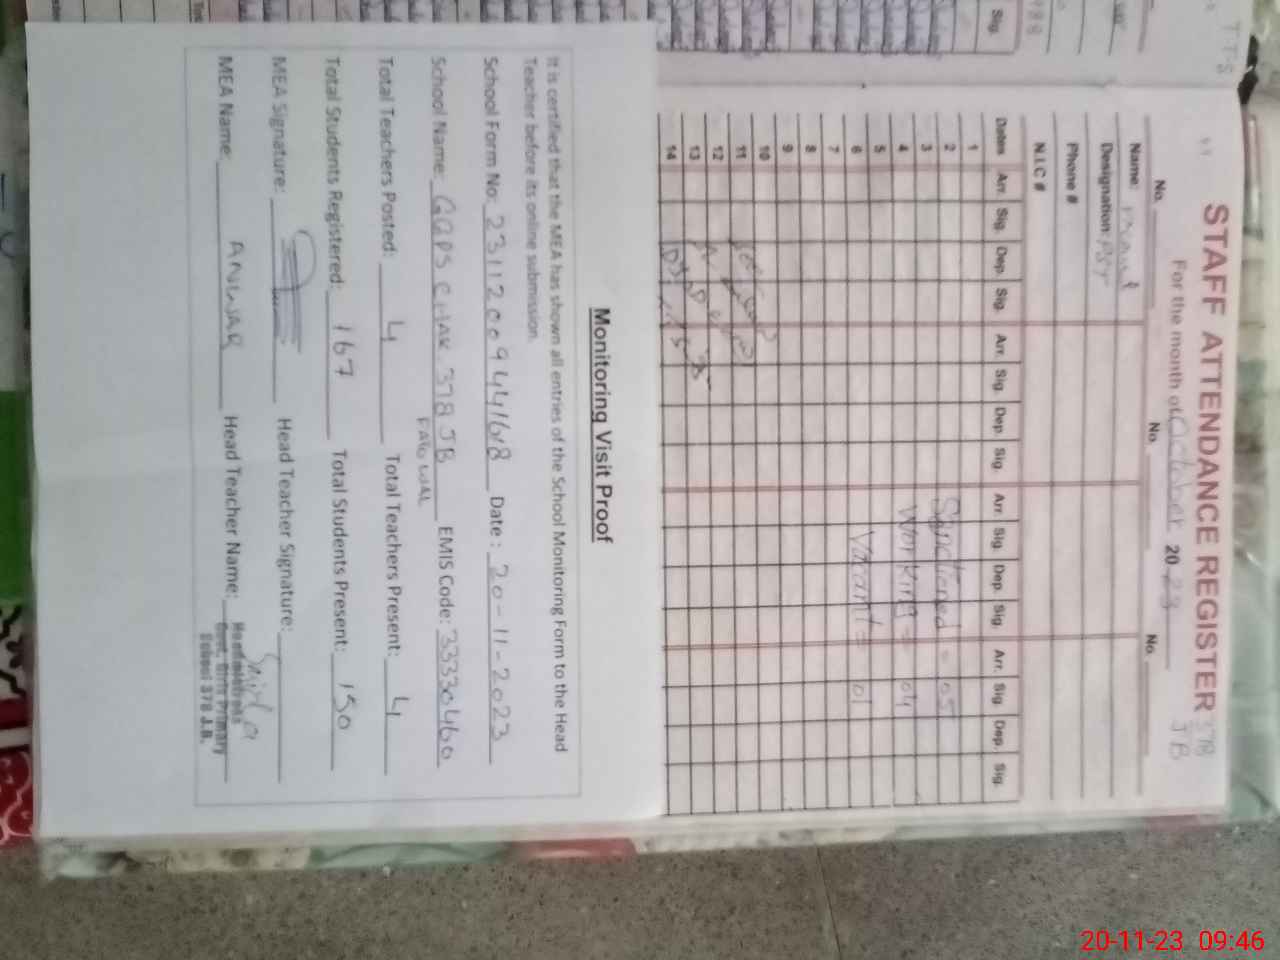 STAFF ATTENDANCE REGISTER 378
JB
For the month of October 2023
No. No. No.
Name:
Designation: PST
Phone #
N.I.C #
Dates Arr. Sig. Dep. Sig. Arr. Sig. Dep. Sig. Arr. Sig. Dep. Sig. Arr. Sig. Dep. Sig.
1
2 Sanctioned = 05
3
4 Working = 04
5
6 Vacant = 01
7
8
9
10
11
12
13
14
Monitoring Visit Proof
It is certified that the MEA has shown all entries of the School Monitoring Form to the Head
Teacher before its online submission.
School Form No: 23112009441618 Date: 20-11-2023
School Name: GGPS CHAK 378 JB EMIS Code: 33330460
Total Teachers Posted: 4 Total Teachers Present: 4
Total Students Registered: 167 Total Students Present: 150
MEA Signature: Head Teacher Signature:
MEA Name: ANWAR Head Teacher Name:
Headmistress
Govt. Girls Primary
School 378 J.B.
20-11-23 09:46